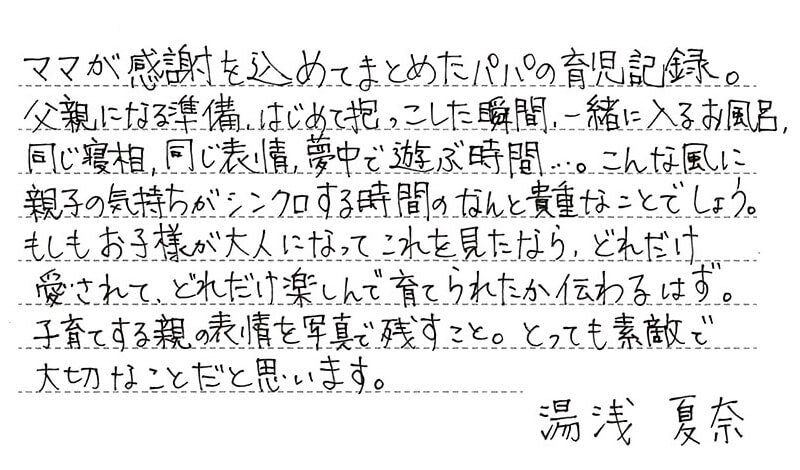 ママが感謝を込めてまとめたパパの育児記録。
父親になる準備、はじめて抱っこした瞬間、一緒に入るお風呂、
同じ寝相、同じ表情、夢中で遊ぶ時間…。こんな風に
親子の気持ちがシンクロする時間のなんと貴重なことでしょう。
もしもお子様が大人になってこれを見たなら、どれだけ
愛されて、どれだけ楽しんで育てられたか伝わるはず。
子育てする親の表情を写真で残すこと。とっても素敵で
大切なことだと思います。
湯浅 夏奈